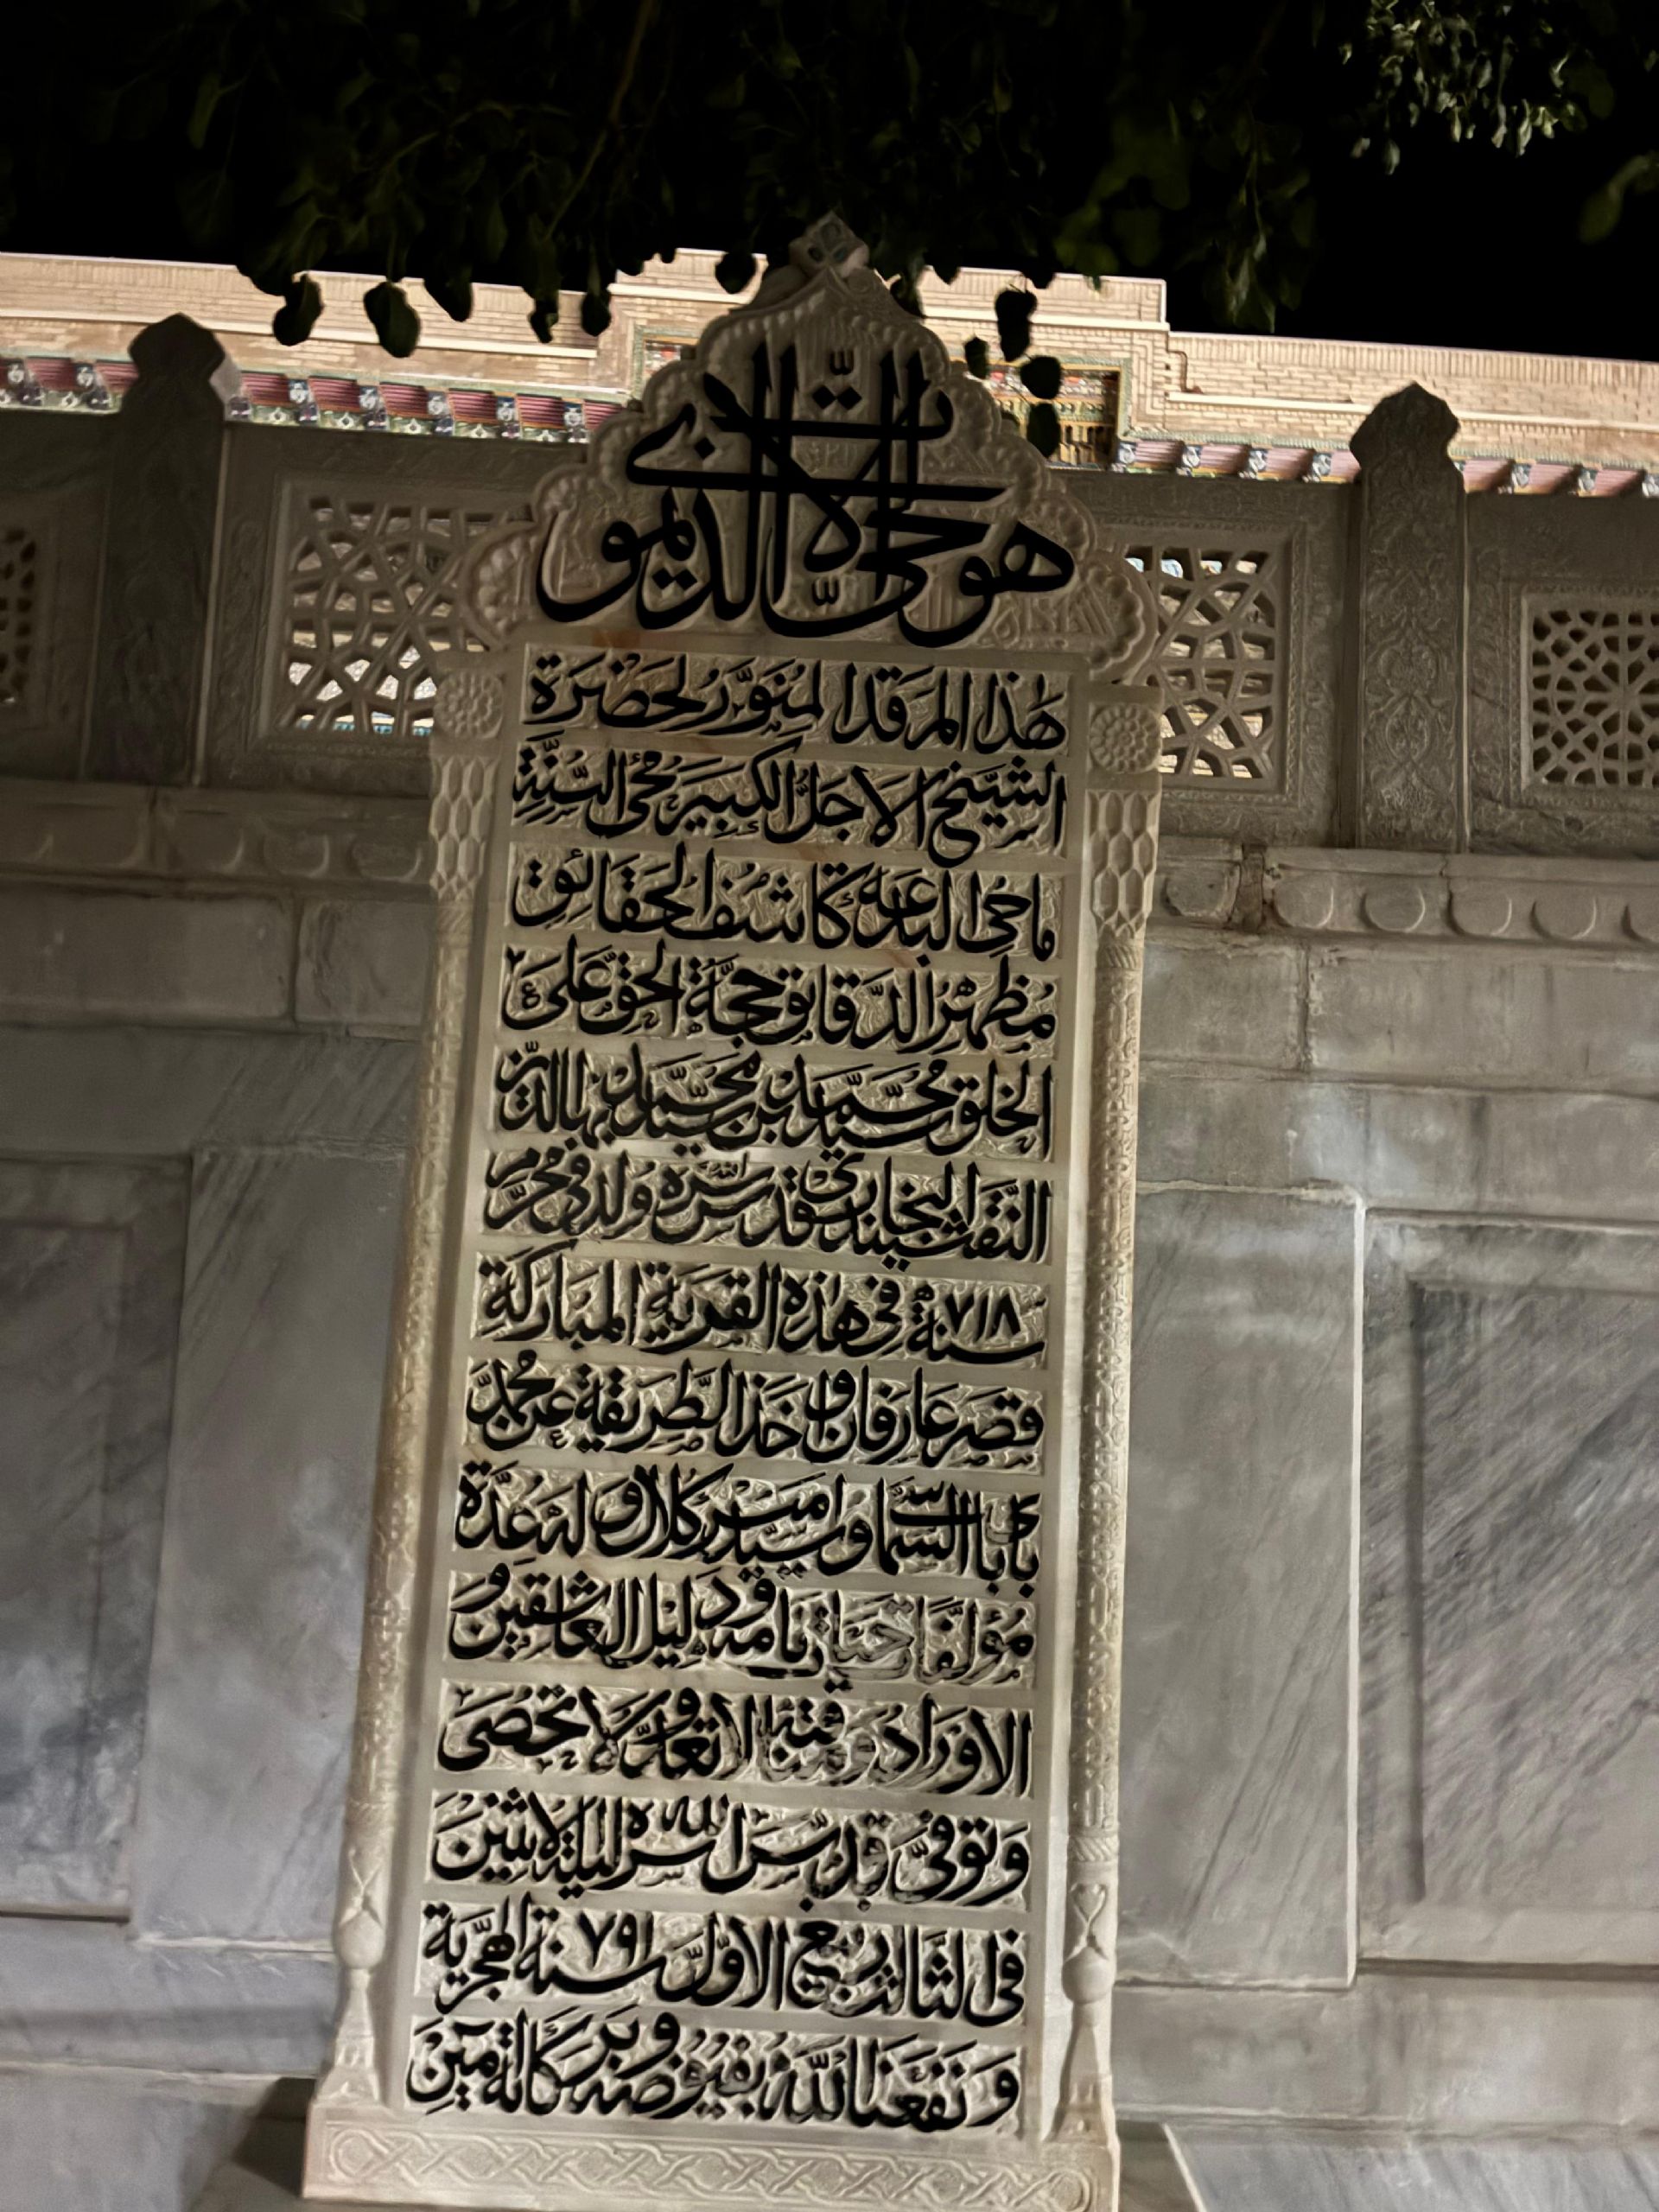 هو الحي الباقي الذي لا يموت
هٰذَا المَرْقَدُ المُنَوَّرُ لِحَضْرَةِ
الشَّيْخِ الاَجَلِّ الكَبِيرِ مُحْيِ السُّنَّةِ
مَاحِيِ البِدْعَةِ كَاشِفُ الحَقَائِقِ
مُظْهِرُ الدَّقَايِقِ حُجَّةُ الحَقِّ عَلىَ
الخلق سيد مُحَمَّد بن سيد مُحَمَّد بهاالدّين
النَّقشبند البخاري قدس الله سِرَّه وُلد في محرّم
سنة ٧١٨ فِي هٰذه القَرْيَةِ المُبَارَكَةِ
قَصْرِ عَارِفَان وَاَخَذَ الطَّرِيقَةَ عَنْ مُحَمَّدْ
بَابَا السَّمَّاسِي وَسَيِّد اَمِير كُلَال وَلَهُ عِدَّةُ
مُؤلَّفَات حيات نَامه وَدَلِيل العَاشِقِينَ وَ
الاَوْرَاد وَمَنَاقِبُهُ لاَ تُعَدُّ وَلاَ تُحْصَى
وَتُوُفِّيَ قُدِّسَ الله سِرُّه لَيْلَةَ الاِثْنَيْنِ
فى الثَّالِث رَبِيعِ الاَوَّل سَنَة ٧٩١ الهِجْرِيَّة
وَنَفَعَنَا اللهُ بِفُيُوضِهِ وَبَرَكَاتِه آمِين